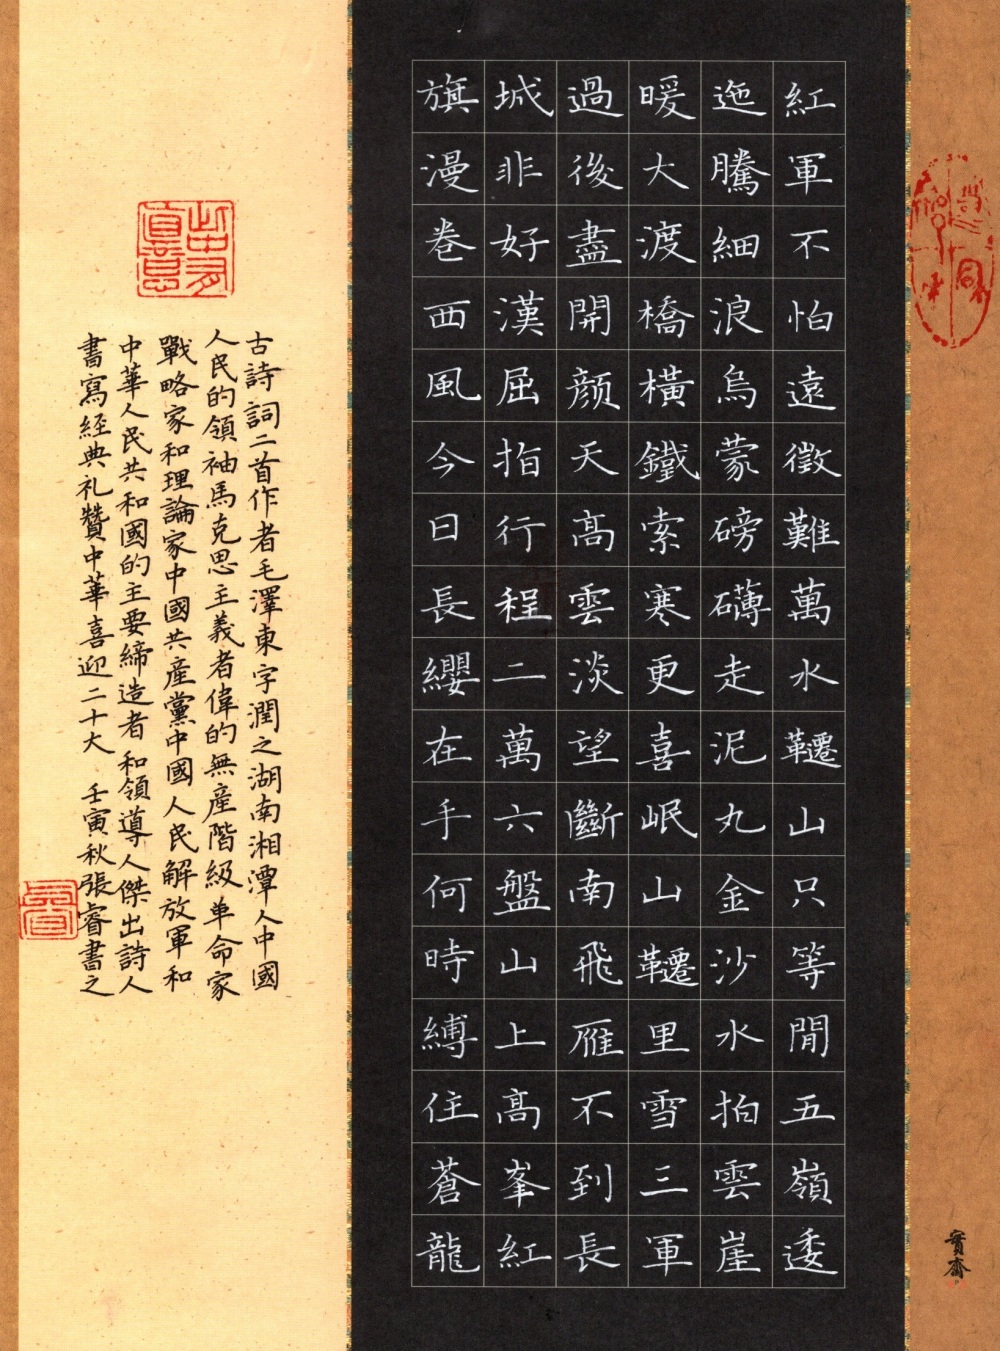 紅軍不怕遠徵難萬水韆山只等閒五嶺逶
迤騰細浪烏蒙磅礴走泥丸金沙水拍雲崖
暖大渡橋橫鐵索寒更喜岷山韆里雪三軍
過後盡開颜天高雲淡望斷南飛雁不到長
城非好漢屈指行程二萬六盤山上高峯紅
旗漫卷西風今日長纓在手何時縛住蒼龍
古詩詞二首作者毛澤東字潤之湖南湘潭人中國
人民的領袖馬克思主義者偉的無產階級革命家
戰略家和理論家中國共產黨中國人民解放軍和
中華人民共和國的主要締造者和領導人傑出詩人
書寫經典礼贊中華喜迎二十大 壬寅秋張睿書之